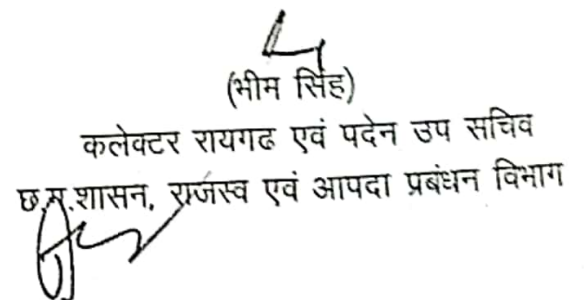 (भीम सिंह)
कलेक्टर रायगढ एवं पदेन उप सचिव
छ.ग.शासन, राजस्व एवं आपदा प्रबंधन विभाग